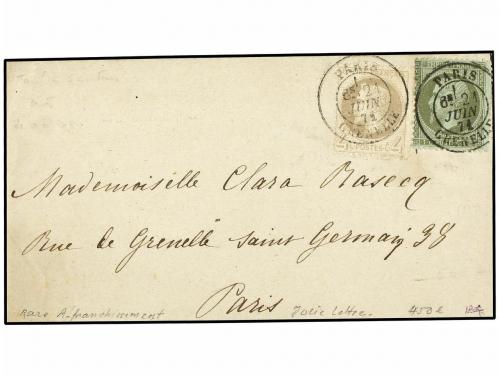 PARIS
6E 21
JUIN
71
GRENELLE
PARIS
6E 21
JUIN
71
GRENELLE
POSTES
Mademoiselle Clara Rasecq
Rue de Grenelle Saint Germain 38
Paris
Rare Affranchissement Jolie lettre. 450 €